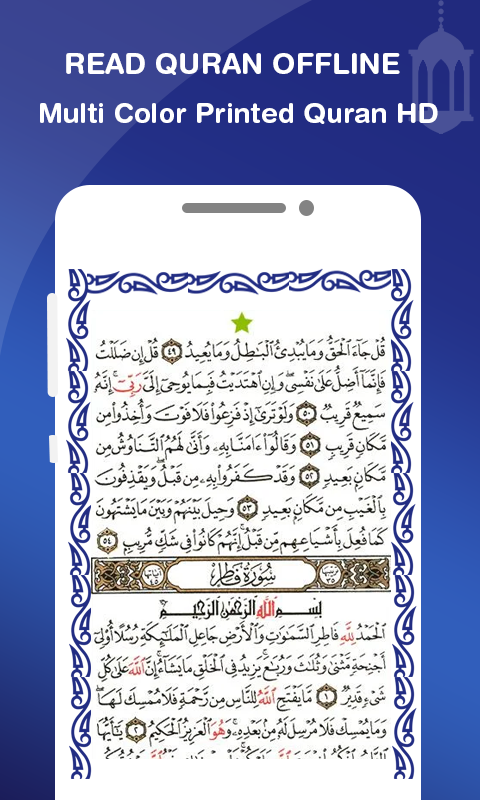 READ QURAN OFFLINE
Multi Color Printed Quran HD
قُلْ جَآءَ ٱلْحَقُّ وَمَا يُبْدِئُ ٱلْبَٰطِلُ وَمَا يُعِيدُ ٤٩ قُلْ إِن ضَلَلْتُ
فَإِنَّمَآ أَضِلُّ عَلَىٰ نَفْسِى وَإِنِ ٱهْتَدَيْتُ فَبِمَا يُوحِىٓ إِلَىَّ رَبِّىٓ إِنَّهُۥ
سَمِيعٌ قَرِيبٌ ٥٠ وَلَوْ تَرَىٰٓ إِذْ فَزِعُوا۟ فَلَا فَوْتَ وَأُخِذُوا۟ مِن
مَّكَانٍ قَرِيبٍ ٥١ وَقَالُوٓا۟ ءَامَنَّا بِهِۦ وَأَنَّىٰ لَهُمُ ٱلتَّنَاوُشُ مِن
مَّكَانٍۭ بَعِيدٍ ٥٢ وَقَدْ كَفَرُوا۟ بِهِۦ مِن قَبْلُ وَيَقْذِفُونَ
بِٱلْغَيْبِ مِن مَّكَانٍۭ بَعِيدٍ ٥٣ وَحِيلَ بَيْنَهُمْ وَبَيْنَ مَا يَشْتَهُونَ
كَمَا فُعِلَ بِأَشْيَاعِهِم مِّن قَبْلُ إِنَّهُمْ كَانُوا۟ فِى شَكٍّ مُّرِيبٍۭ ٥٤
سُورَةُ فَاطِرٍ
بِسْمِ ٱللَّهِ ٱلرَّحْمَٰنِ ٱلرَّحِيمِ
ٱلْحَمْدُ لِلَّهِ فَاطِرِ ٱلسَّمَٰوَٰتِ وَٱلْأَرْضِ جَاعِلِ ٱلْمَلَٰٓئِكَةِ رُسُلًا أُو۟لِىٓ
أَجْنِحَةٍ مَّثْنَىٰ وَثُلَٰثَ وَرُبَٰعَ يَزِيدُ فِى ٱلْخَلْقِ مَا يَشَآءُ إِنَّ ٱللَّهَ عَلَىٰ كُلِّ
شَىْءٍ قَدِيرٌ ١ مَّا يَفْتَحِ ٱللَّهُ لِلنَّاسِ مِن رَّحْمَةٍ فَلَا مُمْسِكَ لَهَا
وَمَا يُمْسِكْ فَلَا مُرْسِلَ لَهُۥ مِنۢ بَعْدِهِۦ وَهُوَ ٱلْعَزِيزُ ٱلْحَكِيمُ ٢ يَٰٓأَيُّهَا